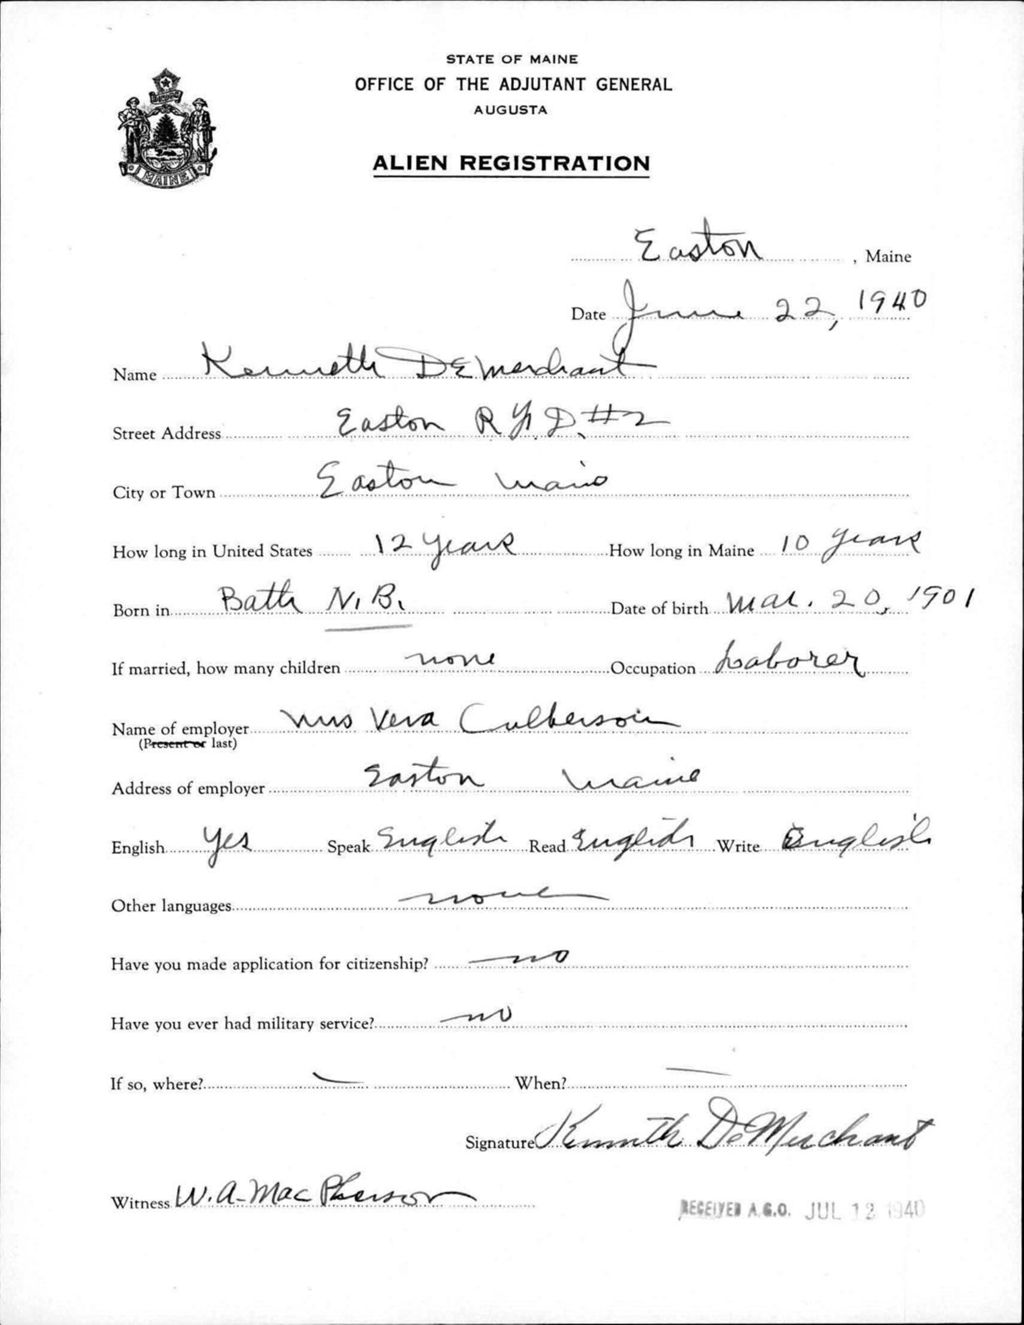 STATE OF MAINE
OFFICE OF THE ADJUTANT GENERAL
AUGUSTA
MAINE
ALIEN REGISTRATION
Easton, Maine
Date June 22, 1940
Name Kenneth DeMerchant
Street Address Easton R.F.D. #2
City or Town Easton Maine
How long in United States 12 years How long in Maine 10 years
Born in Bath N.B. Date of birth Mar. 20, 1901
If married, how many children none Occupation Laborer
Name of employer Mrs Vera Culberson
(Present or last)
Address of employer Easton Maine
English Yes Speak English Read English Write English
Other languages none
Have you made application for citizenship? no
Have you ever had military service? no
If so, where? — When? —
Signature Kenneth DeMerchant
Witness W.A. MacPherson
RECEIVED A.G.O. JUL 12 1940